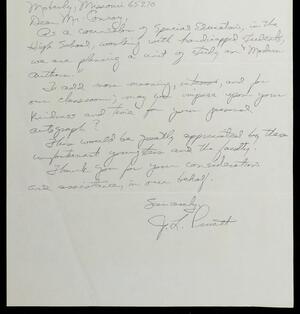 Moberly, Missouri 65270
Dear Mr. Conroy,
As a counselor of Special Education, in the
High School, working with handicapped students,
we are planning a unit of study on "Modern
Authors".
To add more meaning, interest, and for
our classroom, may we impose upon your
kindness and time for your personal
autograph?
This would be greatly appreciated by these
unfortunate youngsters and the faculty.
Thank you for your consideration
and assistance, in our behalf.
Sincerely,
J. L.